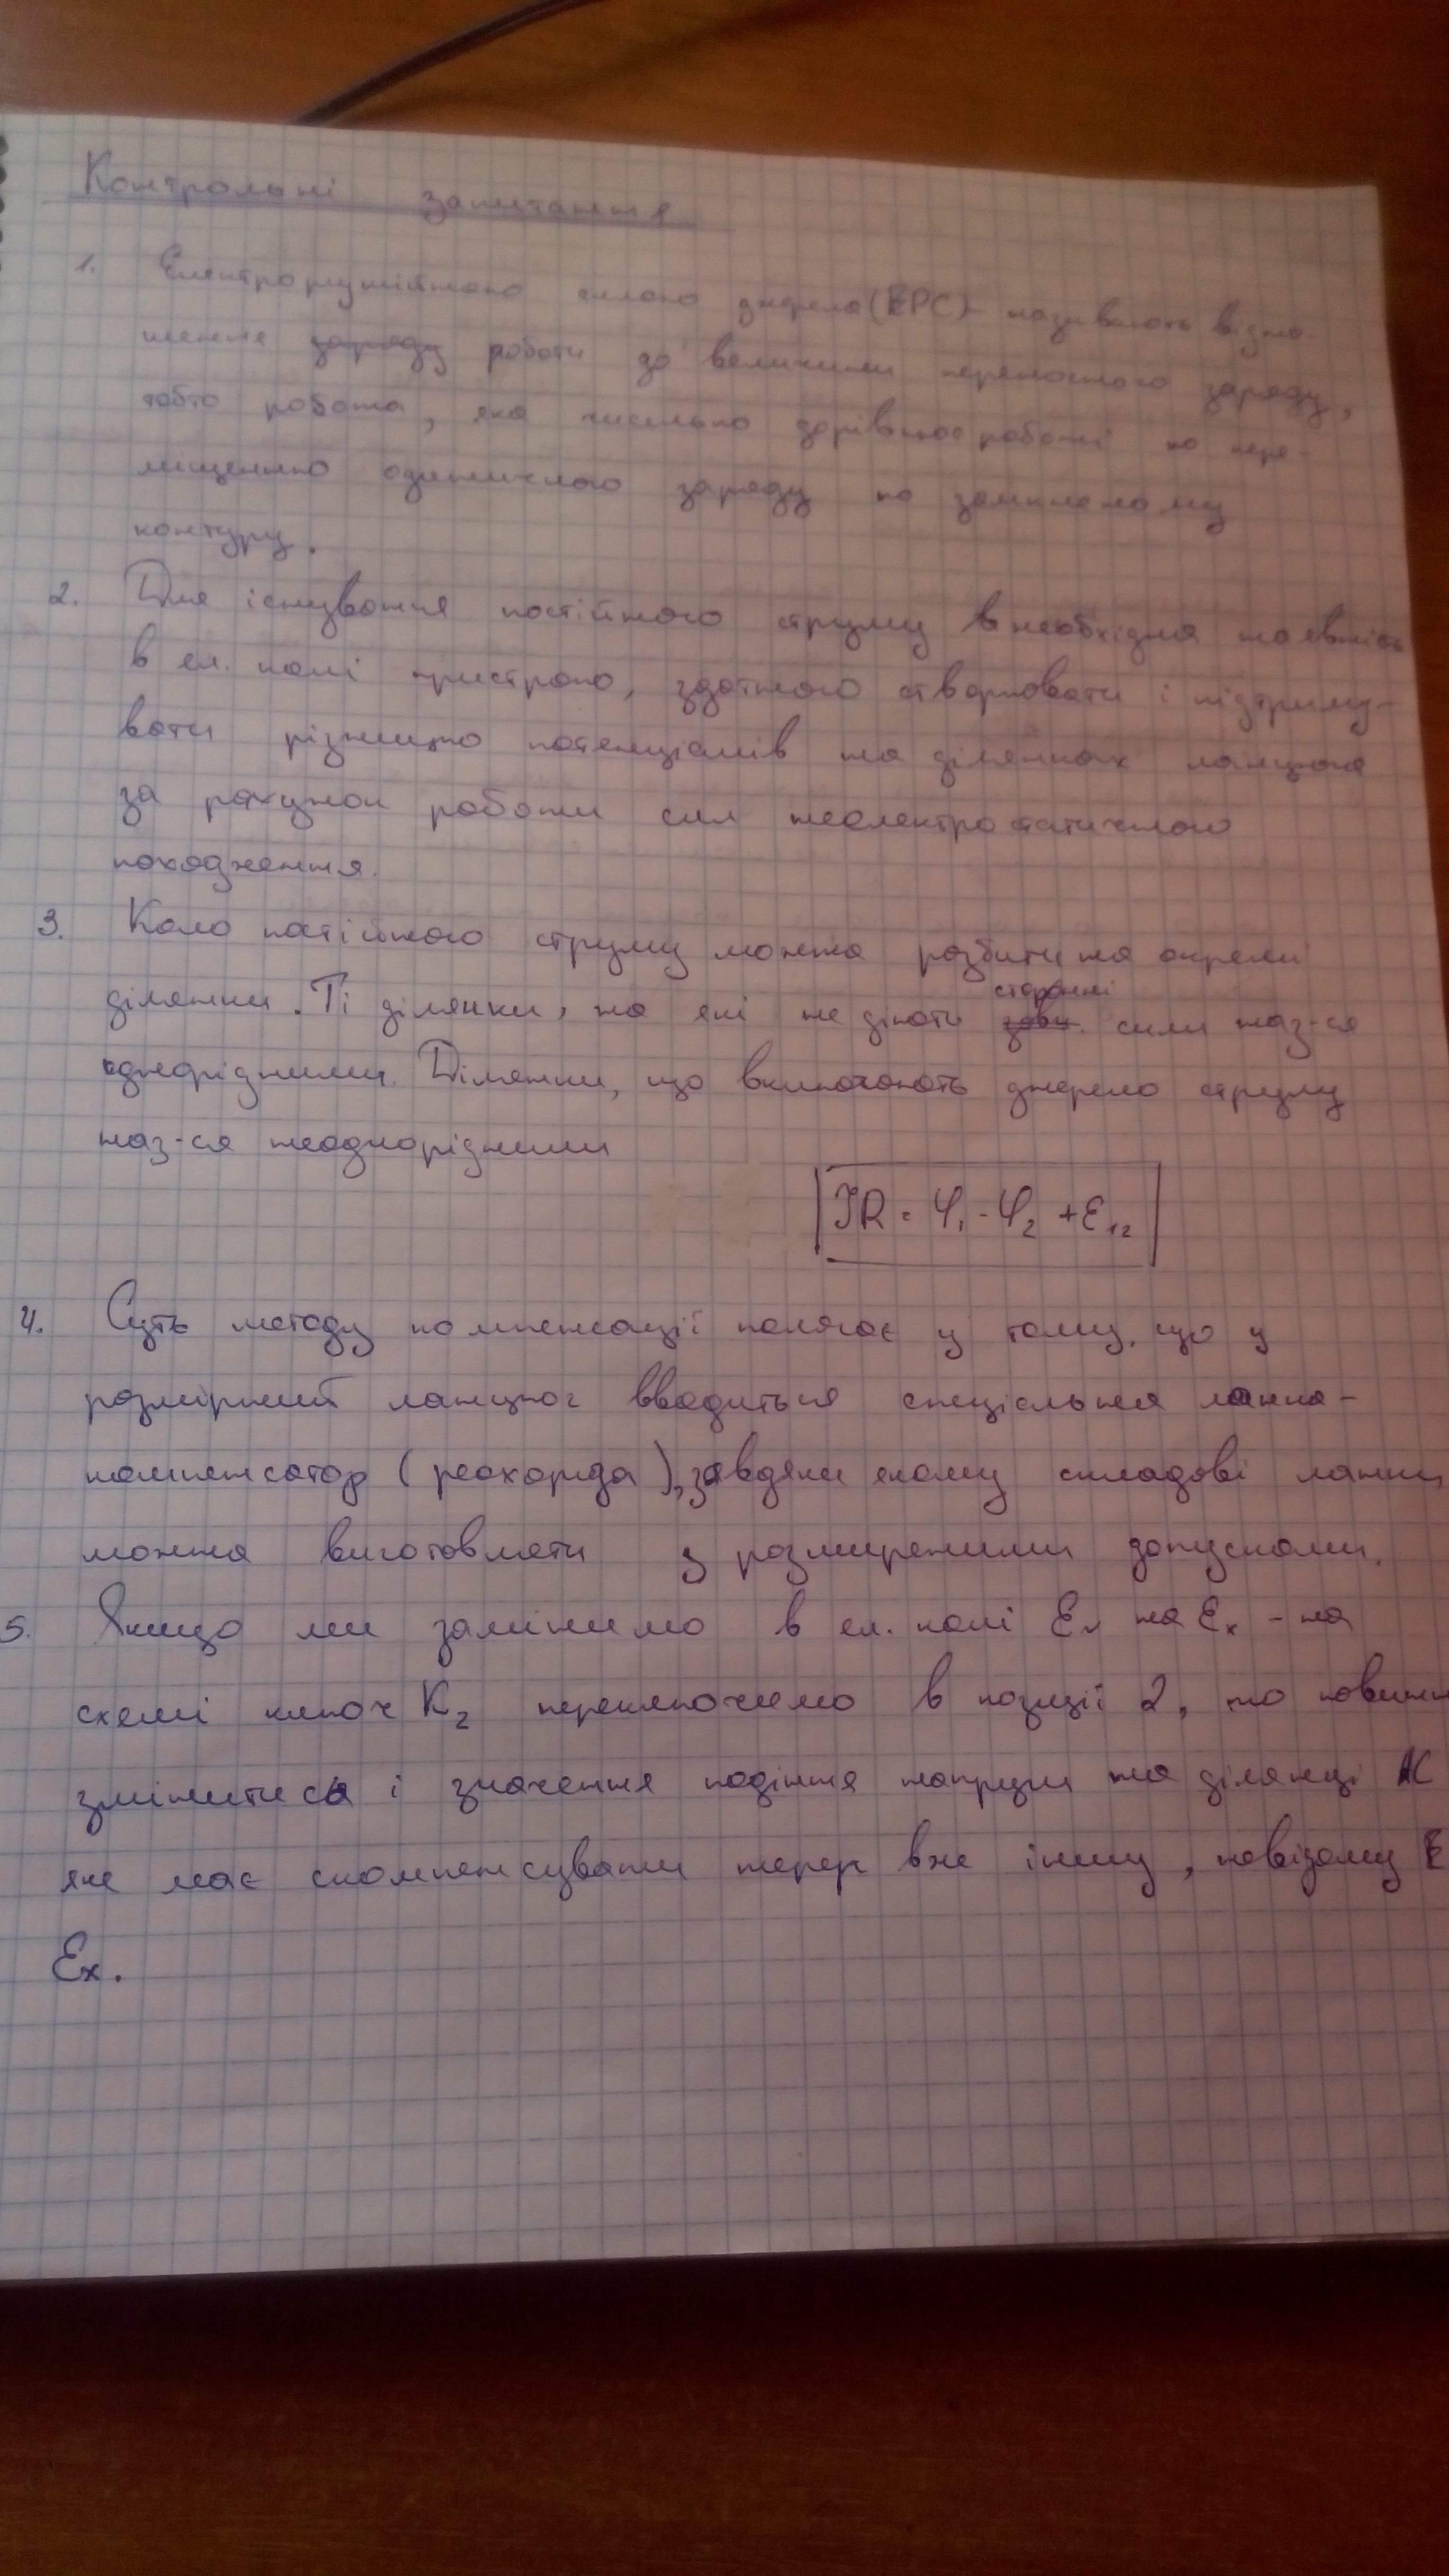 Контрольні запитання
1. Електрорушійною силою джерела (ЕРС) - називають відно-
шення заряду роботи до величини переносного заряду,
тобто робота, яка чисельно дорівнює роботі по пере-
міщенню одиничного заряду по замкненому
контуру.
2. Для існування постійного струму в необхідна наявність
в ел. колі пристрою, здатного створювати і підтриму-
вати різницю потенціалів на ділянках ланцюга
за рахунок роботи сил неелектростатичного
походження.
3. Коло постійного струму можна розбити на окремі
ділянки. Ті ділянки, на які не діють сторонні сили наз-ся
однорідними. Ділянки, що включають джерело струму
наз-ся неоднорідними
IR = φ₁ - φ₂ + ε₁₂
4. Суть методу компенсації полягає у тому, що у
розмірний ланцюг вводиться спеціальна ланка-
компенсатор (реохорда), завдяки якому складові ланки
можна виготовляти з розширеними допусками.
5. Якщо ми замінимо в ел. колі εN на εx - на
схемі ключ K₂ переключимо в позиції 2, то повинн
змінитися і значення падіння напруги на ділянці AC
яке має скомпенсувати тепер вже іншу, невідому E
εx.